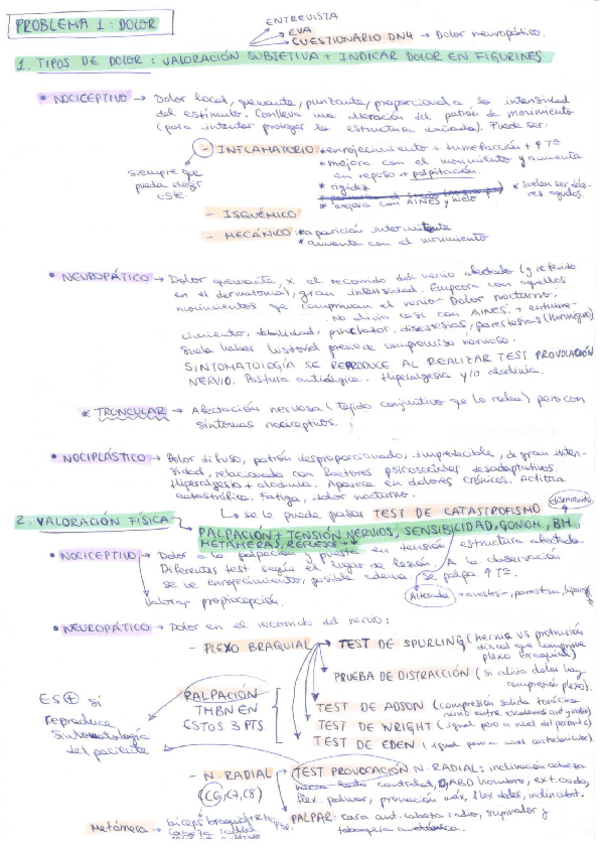 PROBLEMA 1: DOLOR
ENTREVISTA
EVA
CUESTIONARIO DN4 → Dolor neuropático.
1. TIPOS DE DOLOR: VALORACIÓN SUBJETIVA + INDICAR DOLOR EN FIGURINES
• NOCICEPTIVO → Dolor local, punzante, proporcional a la intensidad
del estímulo. Conlleva una alteración del patrón de movimiento
(para intentar proteger la estructura dañada). Puede ser:
- INFLAMATORIO: * enrojecimiento + tumefacción + ↑Tª
* mejora con el movimiento y aumenta
en reposo + palpitación.
* rigidez
* mejora con AINES y hielo
* suelen ser dolo-
res agudos.
siempre que
pueda elegir
este.
- ISQUÉMICO
- MECÁNICO: * aparición intermitente
* aumenta con el movimiento
• NEUROPÁTICO → Dolor quemante, x el recorrido del nervio afectado (y referido
en el dermatoma), gran intensidad. Empeora con aquellos
movimientos que compriman el nervio. Dolor nocturno.
No alivia casi con AINES. + entume-
cimiento, debilidad, pinchazos, disestesias, parestesias (hormigueo)
Suele haber historial previo de compromiso nervioso.
SINTOMATOLOGÍA SE REPRODUCE AL REALIZAR TEST PROVOCACIÓN
NERVIO. Postura antiálgica. Hiperalgesia y/o alodinia.
* TRONCULAR → Afectación nerviosa (tejido conjuntivo que lo rodea) pero con
síntomas nociceptivos.
• NOCIPLÁSTICO → Dolor difuso, patrón desproporcionado, impredecible, de gran inten-
sidad, relacionado con factores psicosociales desadaptativos.
Hiperalgesia + alodinia. Aparece en dolores crónicos. Actitud
catastrófica. Fatiga, dolor nocturno.
↳ se le puede pasar TEST DE CATASTROFISMO
disminuido
2. VALORACIÓN FÍSICA
PALPACIÓN + TENSIÓN NERVIOS, SENSIBILIDAD, GONIOM., BM,
METÁMERAS, REFLEJO
• NOCICEPTIVO → Dolor a la palpación y puesta en tensión estructura afectada.
Diferentes test según el lugar de lesión. A la observación
se ve enrojecimiento, posible edema. Se palpa ↑Tª.
Valorar propiocepción.
Alterada →
• NEUROPÁTICO → Dolor en el recorrido del nervio:
- PLEXO BRAQUIAL → TEST DE SPURLING (hernia vs protrusión
discal que comprime
plexo braquial)
PRUEBA DE DISTRACCIÓN (si alivia dolor hay
compresión plexo).
PALPACIÓN
TMBN EN
ESTOS 3 PTS
TEST DE ADSON (compresión salida torácica
nervio entre escalenos ant y medio)
TEST DE WRIGHT (igual pero a nivel del pectoral)
TEST DE EDEN (igual pero a nivel costoclavicular).
ES ⊕ si
reproduce
sintomatología
del paciente
- N. RADIAL
(C6, C7, C8)
TEST PROVOCACIÓN N. RADIAL: inclinación cabeza
contralat, ABD hombro, ext. codo,
flex. palmar, pronación máx, flex dedos, inclin cubit.
Metámera → bíceps braquial
PALPAR: cara ant. cabeza radio, supinador y
tabaquera anatómica.